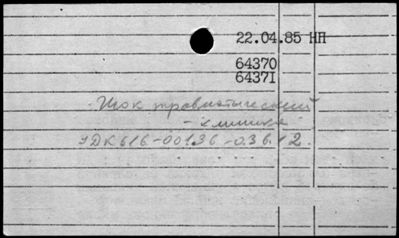 22.04.85 НП
64370
64371
Шок травматический
- клиника
УДК 616-001.36-036.12.